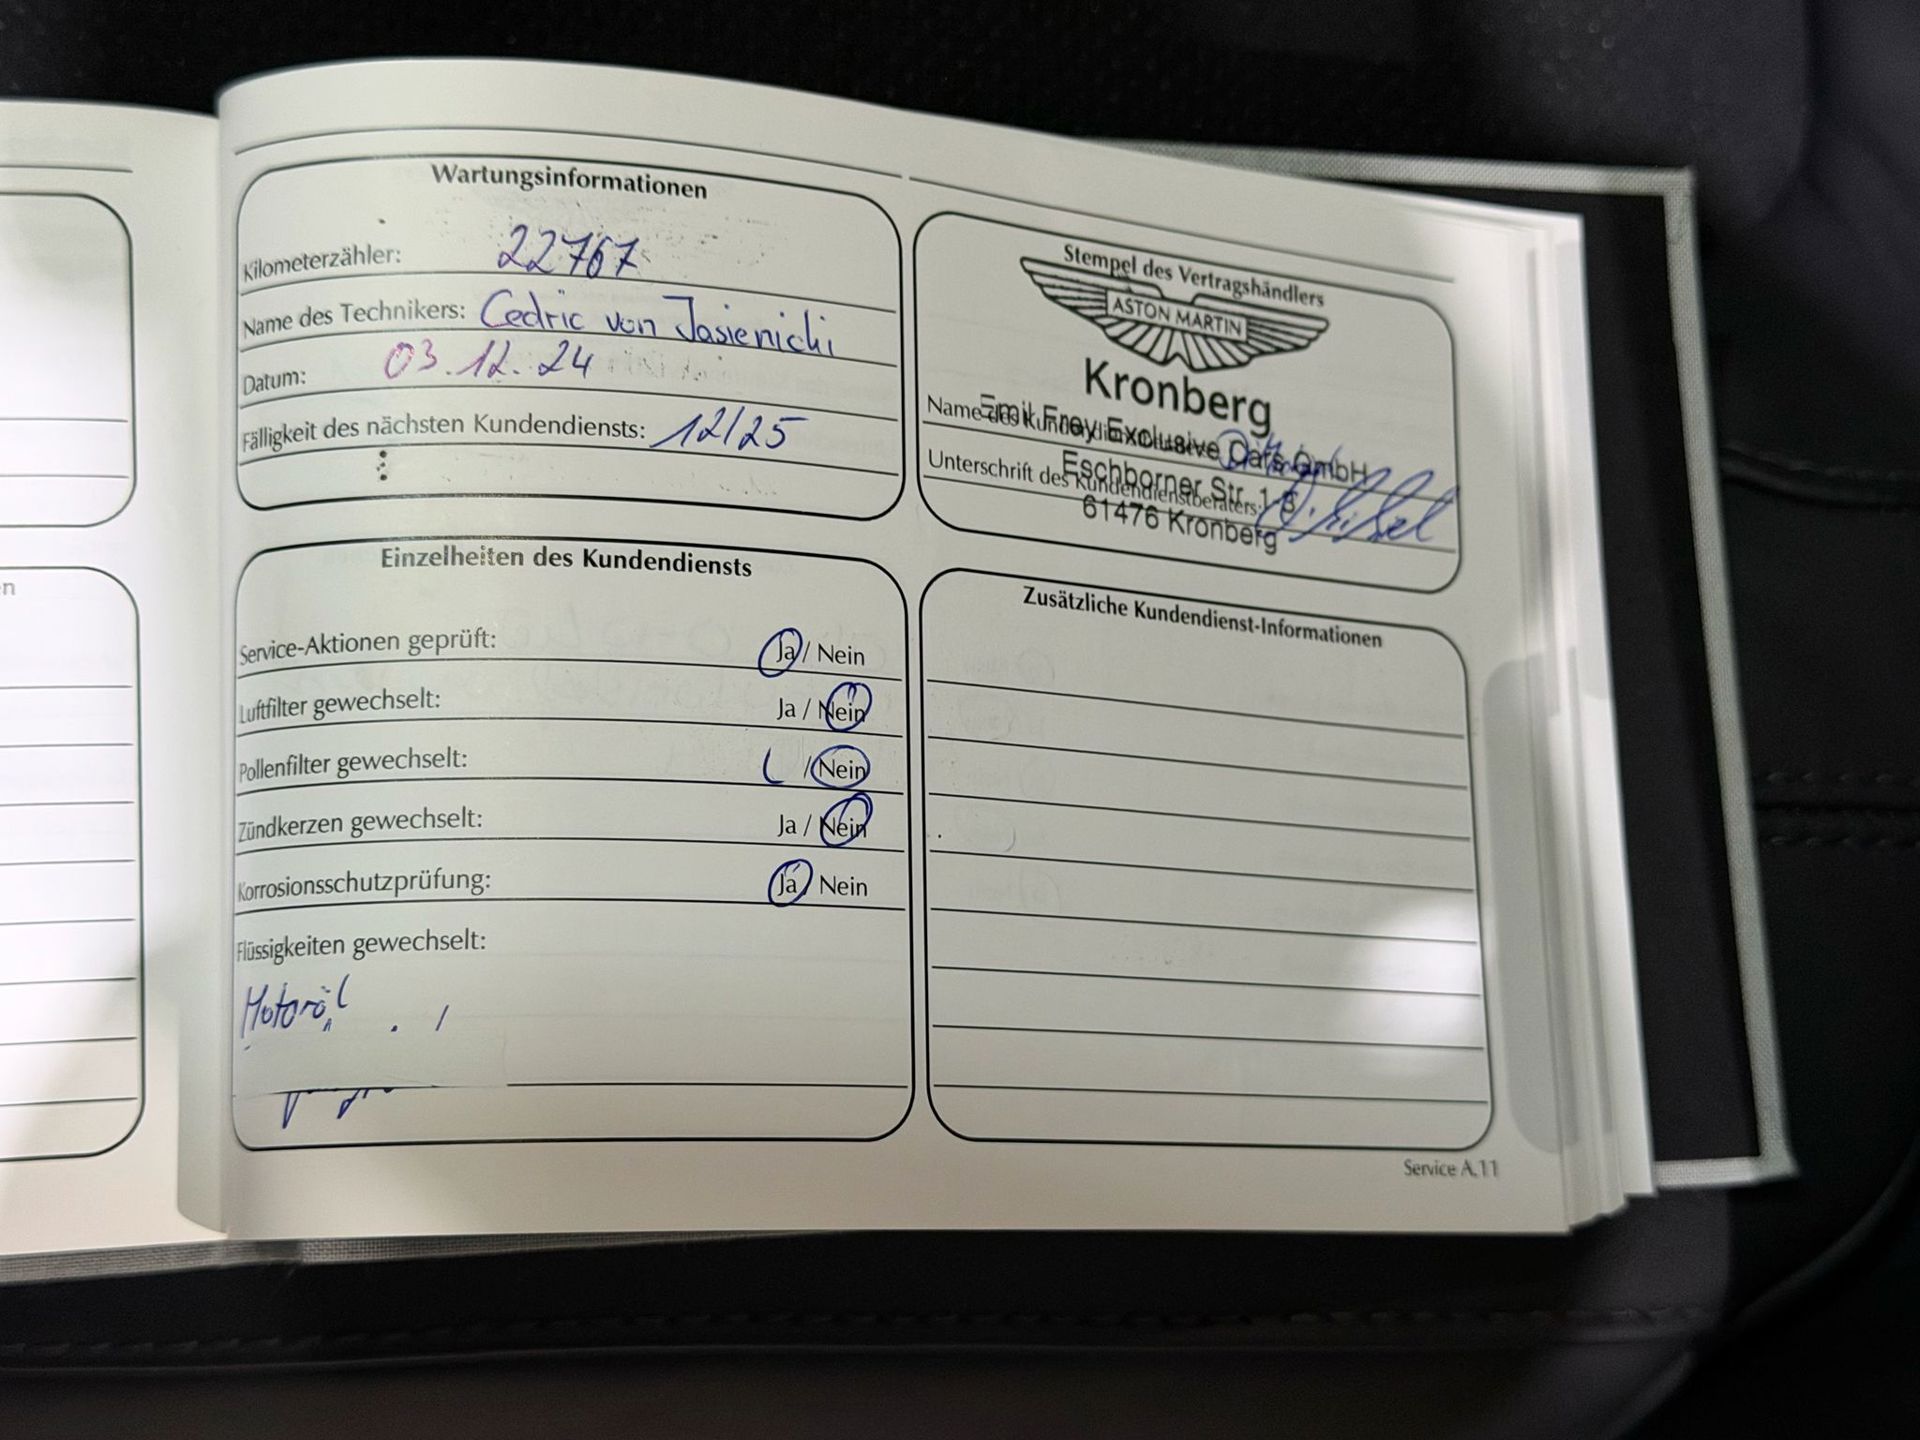 Wartungsinformationen
Kilometerzähler: 22767
Name des Technikers: Cedric von Jasienicki
Datum: 03.12.24
Fälligkeit des nächsten Kundendiensts: 12/25
Stempel des Vertragshändlers
ASTON MARTIN
Kronberg
Emil Frey Exclusive Cars GmbH
Eschborner Str.
Unterschrift des Kundendienstberaters:
61476 Kronberg
Einzelheiten des Kundendiensts
Service-Aktionen geprüft: Ja / Nein
Luftfilter gewechselt: Ja / Nein
Pollenfilter gewechselt: / Nein
Zündkerzen gewechselt: Ja / Nein
Korrosionsschutzprüfung: Ja / Nein
Flüssigkeiten gewechselt:
Motoröl
Zusätzliche Kundendienst-Informationen
Service A.11